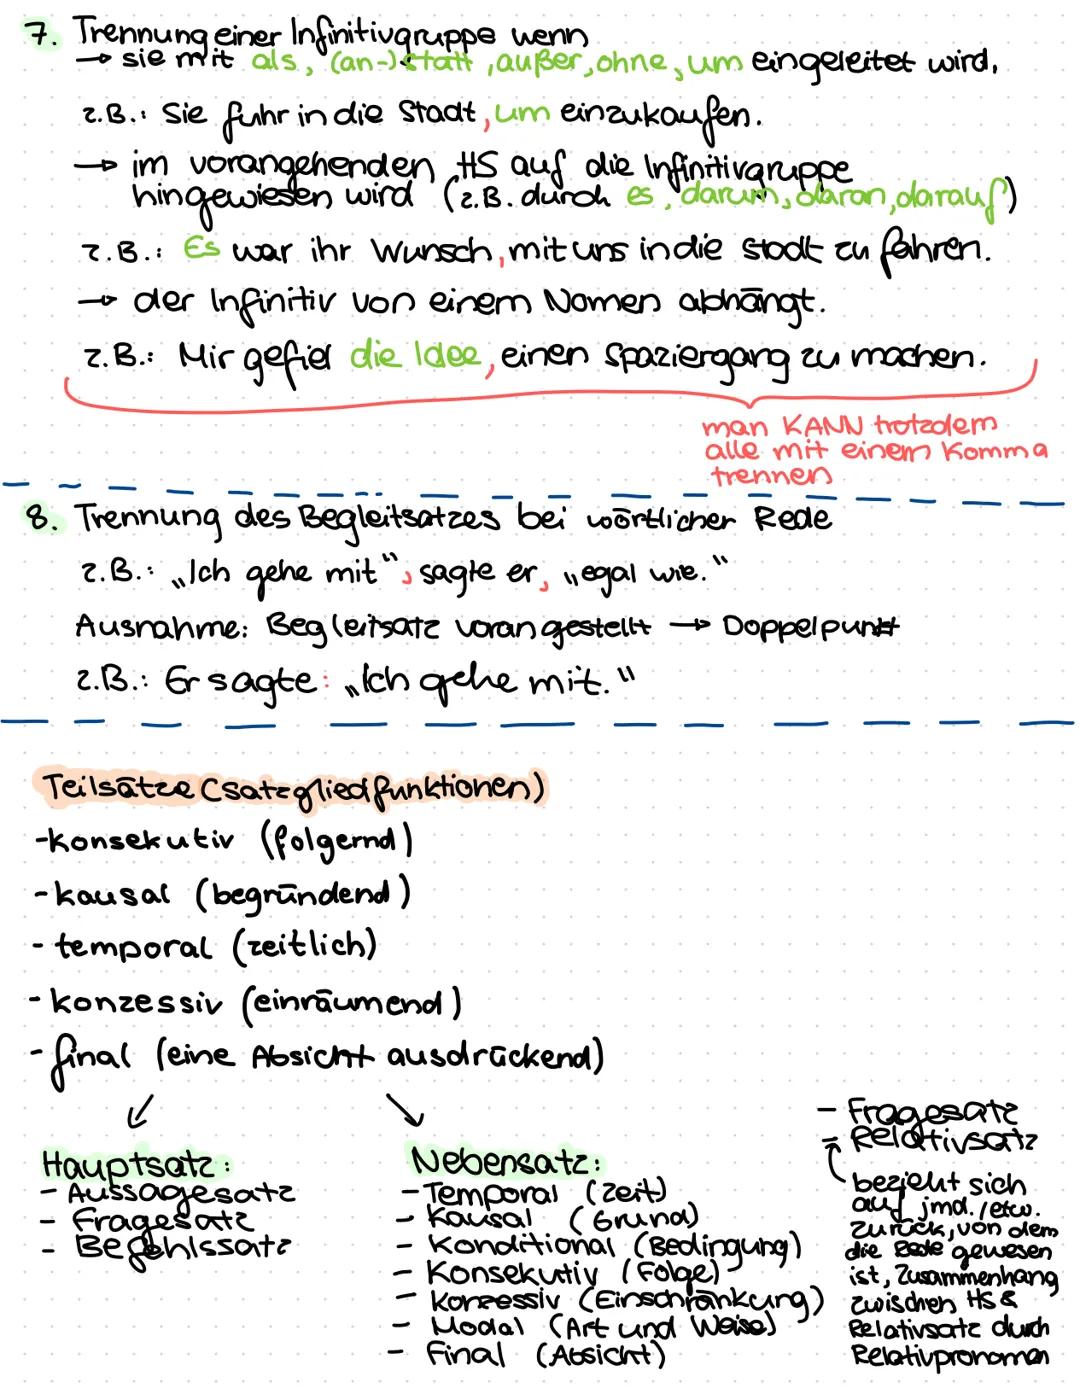 7. Trennung einer Infinitivgruppe wenn
→ sie mit als, (an-)statt, außer, ohne, um eingeleitet wird.
z.B.: Sie fuhr in die Stadt, um einzukaufen.
→ im vorangehenden HS auf die Infinitivgruppe
hingewiesen wird (z.B. durch es, darum, daran, darauf)
z.B.: Es war ihr Wunsch, mit uns in die Stadt zu fahren.
→ der Infinitiv von einem Nomen abhängt.
z.B.: Mir gefiel die Idee, einen Spaziergang zu machen.
man KANN trotzdem
alle mit einem Komma
trennen
8. Trennung des Begleitsatzes bei wörtlicher Rede
z.B.: „Ich gehe mit“, sagte er, „egal wie.“
Ausnahme: Begleitsatz vorangestellt → Doppelpunkt
z.B.: Er sagte: „Ich gehe mit.“
Teilsätze (Satzgliedfunktionen)
-konsekutiv (folgernd)
-kausal (begründend)
- temporal (zeitlich)
- konzessiv (einräumend)
- final (eine Absicht ausdrückend)
Hauptsatz:
- Aussagesatz
- Fragesatz
- Befehlssatz
Nebensatz:
- Temporal (Zeit)
- Kausal (Grund)
- Konditional (Bedingung)
- Konsekutiv (Folge)
- Konzessiv (Einschränkung)
- Modal (Art und Weise)
- Final (Absicht)
- Fragesatz
- Relativsatz
bezieht sich
auf jmd./etw.
zurück, von dem
die Rede gewesen
ist, Zusammenhang
zwischen HS &
Relativsatz durch
Relativpronomen